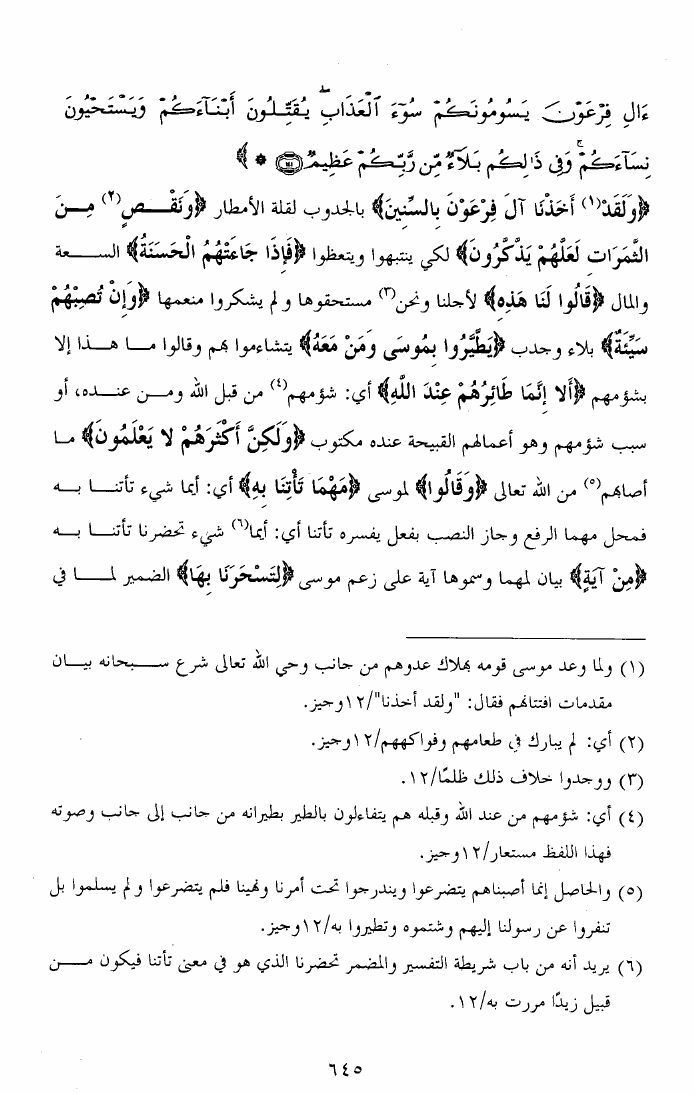 ءَالِ فِرْعَوْنَ يَسُومُونَكُمْ سُوٓءَ ٱلْعَذَابِ ۖ يُقَتِّلُونَ أَبْنَآءَكُمْ وَيَسْتَحْيُونَ
نِسَآءَكُمْ ۚ وَفِى ذَٰلِكُم بَلَآءٌ مِّن رَّبِّكُمْ عَظِيمٌ ﴿١٤١﴾ * ﴾
﴿وَلَقَدْ(١) أَخَذْنَا آلَ فِرْعَوْنَ بِالسِّنِينَ﴾ بالجدوب لقلة الأمطار ﴿وَنَقْصٍ(٢) مِنَ
الثَّمَرَات لَعَلَّهُمْ يَذَّكَّرُونَ﴾ لكي ينتبهوا ويتعظوا ﴿فَإِذَا جَاءَتْهُمُ الْحَسَنَةُ﴾ السعة
والمال ﴿قَالُوا لَنَا هَذِهِ﴾ لأجلنا ونحن(٣) مستحقوها ولم يشكروا منعمها ﴿وَإِنْ تُصِبْهُمْ
سَيِّئَةٌ﴾ بلاء وجدب ﴿يَطَّيَّرُوا بِمُوسَى وَمَنْ مَعَهُ﴾ يتشاءموا بهم وقالوا ما هذا إلا
بشؤمهم ﴿أَلا إِنَّمَا طَائِرُهُمْ عِنْدَ اللَّهِ﴾ أي: شؤمهم(٤) من قبل الله ومن عنده، أو
سبب شؤمهم وهو أعمالهم القبيحة عنده مكتوب ﴿وَلَكِنَّ أَكْثَرَهُمْ لا يَعْلَمُونَ﴾ ما
أصابهم(٥) من الله تعالى ﴿وَقَالُوا﴾ لموسى ﴿مَهْمَا تَأْتِنَا بِهِ﴾ أي: أيما شيء تأتنا به
فمحل مهما الرفع وجاز النصب بفعل يفسره تأتنا أي: أيما(٦) شيء تحضرنا تأتنا به
﴿مِنْ آيَةٍ﴾ بيان لمهما وسموها آية على زعم موسى ﴿لِتَسْحَرَنَا بِهَا﴾ الضمير لما في
(١) ولما وعد موسى قومه بهلاك عدوهم من جانب وحي الله تعالى شرع سبحانه بيان
مقدمات افتتالهم فقال: "ولقد أخذنا"/١٢وجيز.
(٢) أي: لم يبارك في طعامهم وفواكههم/١٢وجيز.
(٣) ووجدوا خلاف ذلك ظلمًا/١٢.
(٤) أي: شؤمهم من عند الله وقبله هم يتفاءلون بالطير بطيرانه من جانب إلى جانب وصوته
فهذا اللفظ مستعار/١٢وجيز.
(٥) والحاصل إنما أصبناهم يتضرعوا ويندرجوا تحت أمرنا ونهينا فلم يتضرعوا ولم يسلموا بل
تنفروا عن رسولنا إليهم وشتموه وتطيروا به/١٢وجيز.
(٦) يريد أنه من باب شريطة التفسير والمضمر تحضرنا الذي هو في معنى تأتنا فيكون من
قبيل زيدًا مررت به/١٢.
٦٤٥